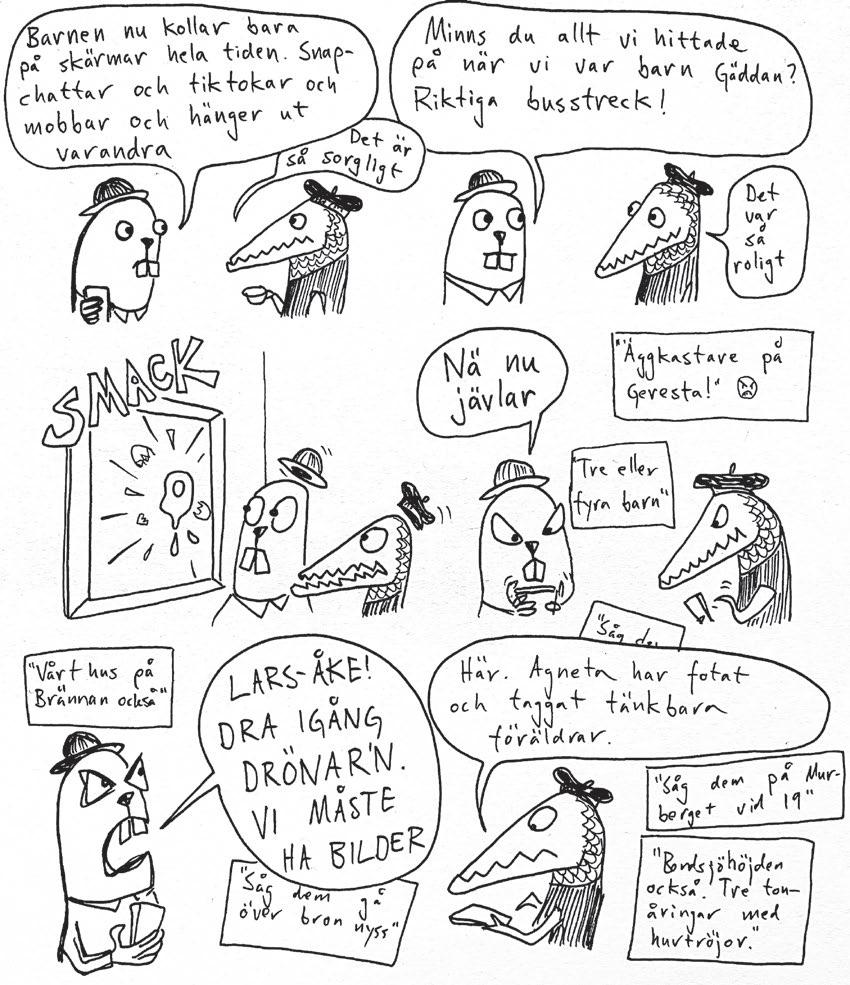 Barnen nu kollar bara
på skärmar hela tiden. Snap-
chattar och tiktokar och
mobbar och hänger ut
varandra
Det är
så sorgligt
Minns du allt vi hittade
på när vi var barn Gäddan?
Riktiga busstreck!
Det
var
så
roligt
SMACK
Nä nu
jävlar
"Äggkastare på
Geresta!"
"Tre eller
fyra barn"
"Såg de
"Vårt hus på
Brännan också"
LARS-ÅKE!
DRA IGÅNG
DRÖNAR'N.
VI MÅSTE
HA BILDER
"Såg dem gå
över bron nyss"
Här. Agneta har fotat
och taggat tänkbara
föräldrar.
"Såg dem på Mur-
berget vid 19"
"Bondsjöhöjden
också. Tre ton-
åringar med
huvtröjor."